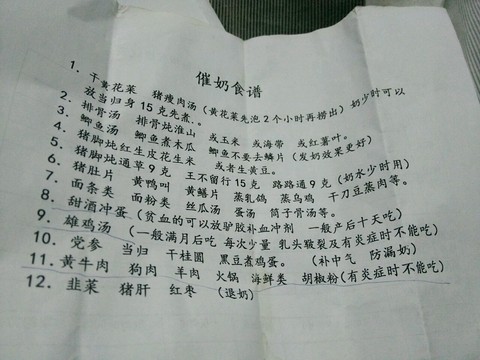 催奶食谱
1. 干黄花菜 猪瘦肉汤 (黄花菜先泡2个小时再捞出) 奶少时可以
放当归身15克先煮.。
2. 排骨汤 排骨炖淮山 或玉米 或海带 或红薯叶。
3. 鲫鱼汤 鲫鱼煮木瓜 鲫鱼不要去鳞片 (发奶效果更好)
4. 猪脚炖红生皮花生米 或者生黄豆。
5. 猪脚炖通草9克 王不留行15克 路路通9克 (奶水少时用)
6. 猪肚片 黄鸭叫 黄鳝片 蒸乳鸽 蒸乌鸡 干刀豆蒸肉等。
7. 面条类 面粉类 丝瓜汤 蛋汤 筒子骨汤等。
8. 甜酒冲蛋 (贫血的可以放驴胶补血冲剂 一般产后十天吃)
9. 雄鸡汤 (一般满月后吃 每次少量 乳头皲裂及有炎症时不能吃)
10. 党参 当归 干桂圆 黑豆煮鸡蛋。 (补中气 防漏奶)
11. 黄牛肉 狗肉 羊肉 火锅 海鲜类 胡椒粉(有炎症时不能吃)
12. 韭菜 猪肝 红枣 (退奶)